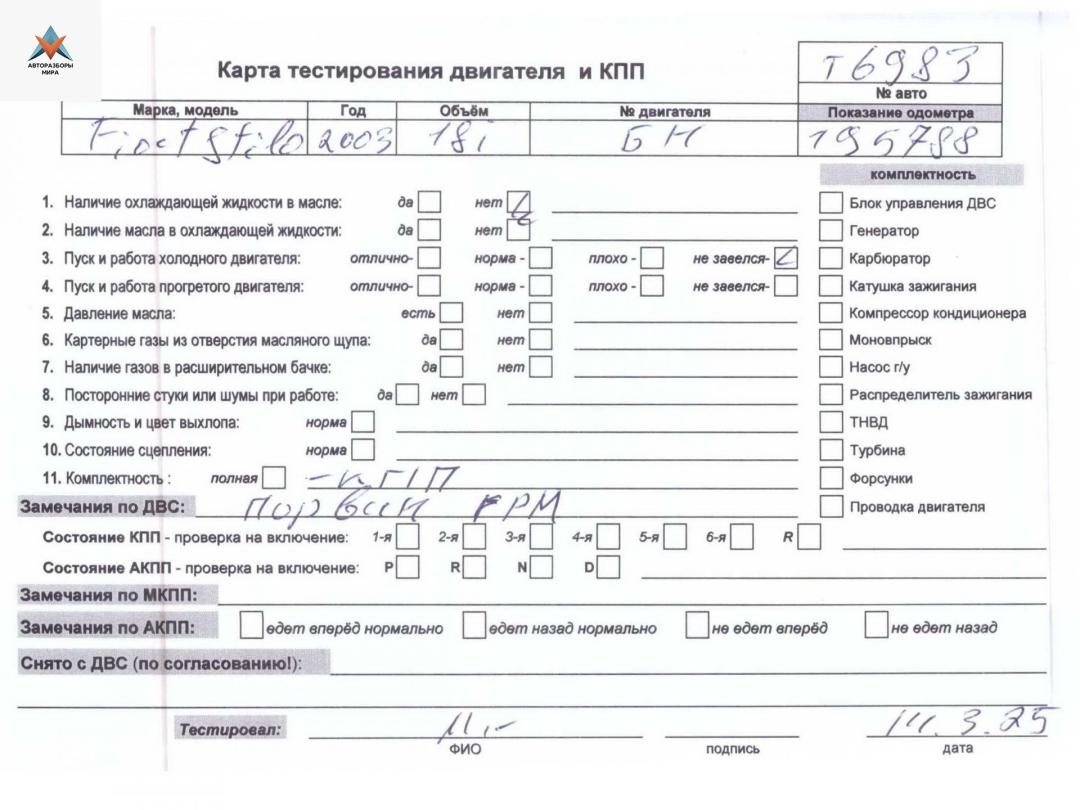 АВТОРАЗБОРЫ
МИРА
Карта тестирования двигателя и КПП
Т6983
№ авто
Марка, модель Год Объём № двигателя Показание одометра
Fiat Stilo 2003 18i БН 195788
комплектность
1. Наличие охлаждающей жидкости в масле: да нет Блок управления ДВС
2. Наличие масла в охлаждающей жидкости: да нет Генератор
3. Пуск и работа холодного двигателя: отлично- норма - плохо - не завелся- Карбюратор
4. Пуск и работа прогретого двигателя: отлично- норма - плохо - не завелся- Катушка зажигания
5. Давление масла: есть нет Компрессор кондиционера
6. Картерные газы из отверстия масляного щупа: да нет Моновпрыск
7. Наличие газов в расширительном бачке: да нет Насос г/у
8. Посторонние стуки или шумы при работе: да нет Распределитель зажигания
9. Дымность и цвет выхлопа: норма ТНВД
10. Состояние сцепления: норма Турбина
11. Комплектность : полная Форсунки
Замечания по ДВС: ГРМ Проводка двигателя
Состояние КПП - проверка на включение: 1-я 2-я 3-я 4-я 5-я 6-я R
Состояние АКПП - проверка на включение: P R N D
Замечания по МКПП:
Замечания по АКПП: едет вперёд нормально едет назад нормально не едет вперёд не едет назад
Снято с ДВС (по согласованию!):
Тестировал: 14.3.25
ФИО подпись дата